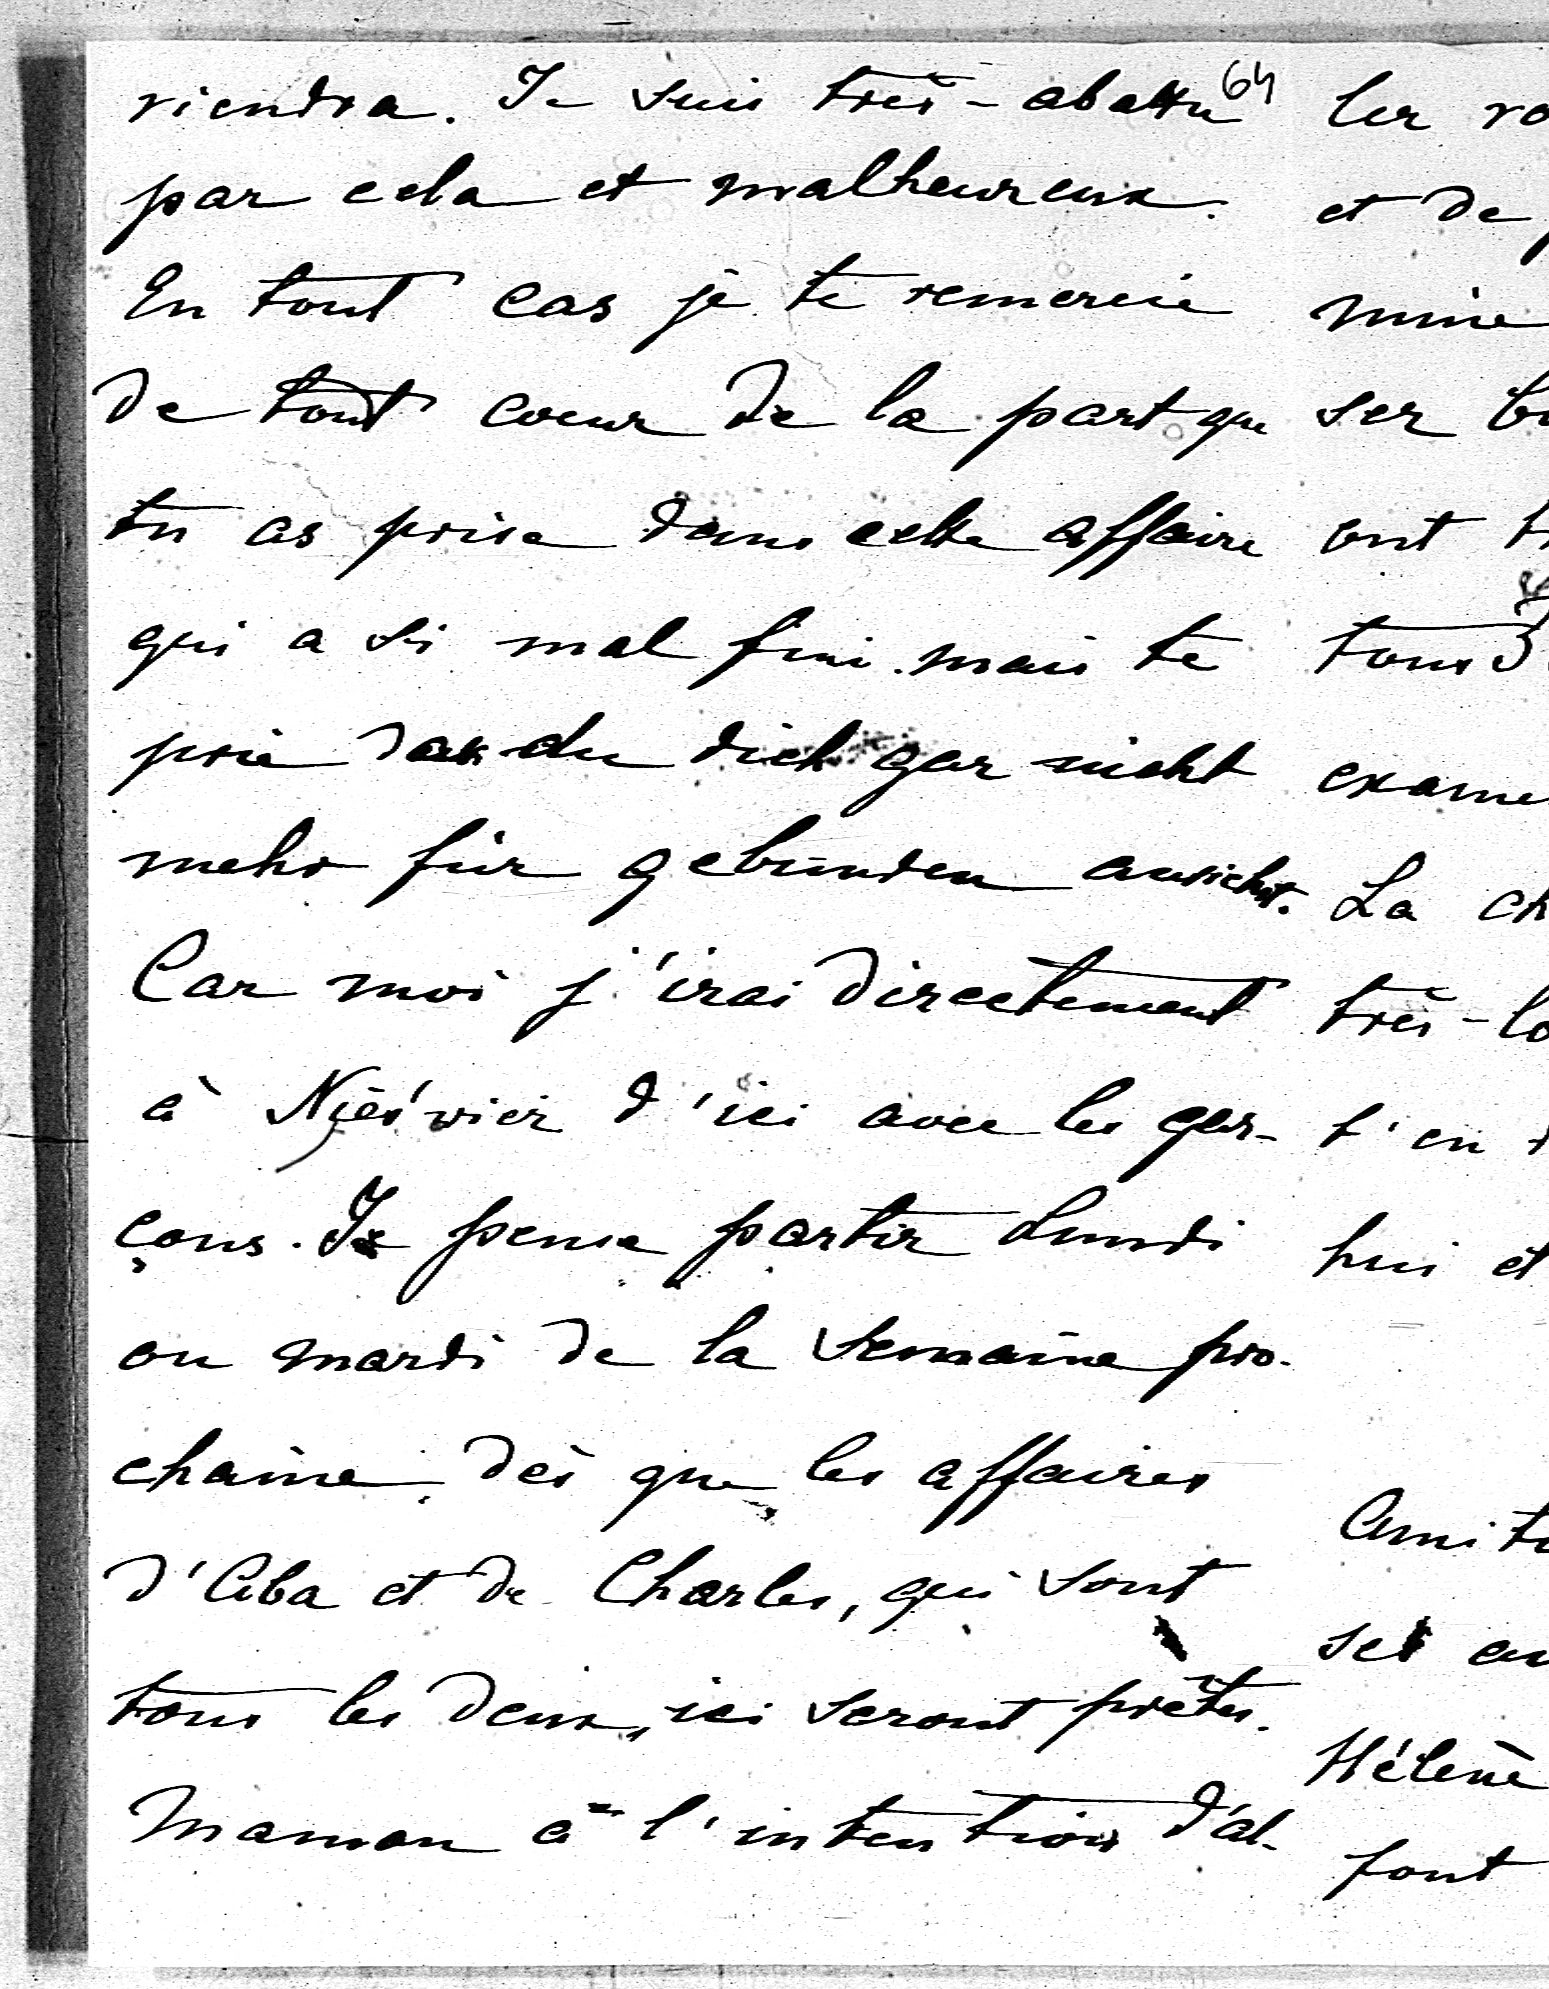 64
viendra. Je suis très-abattu
par cela et malheureux.
En tout cas je te remercie
de tout coeur de la part que
tu as prise dans cette affaire
qui a si mal fini. mais te
prie das du dich gar nicht
mehr für gebunden ansiehst.
Car moi j'irai directement
à Nieświez d'ici avec les gar-
çons. Je pense partir Lundi
ou mardi de la semaine pro-
chaine, dès que les affaires
d'Aba et de Charles, qui sont
tous les deux, ici seront prêtes.
Maman a l'intention d'al-
ler
et de
mine
ser
ont
tous
exame
La ch
très-
t'en
hui et
Amiti
ses
Hélène
font